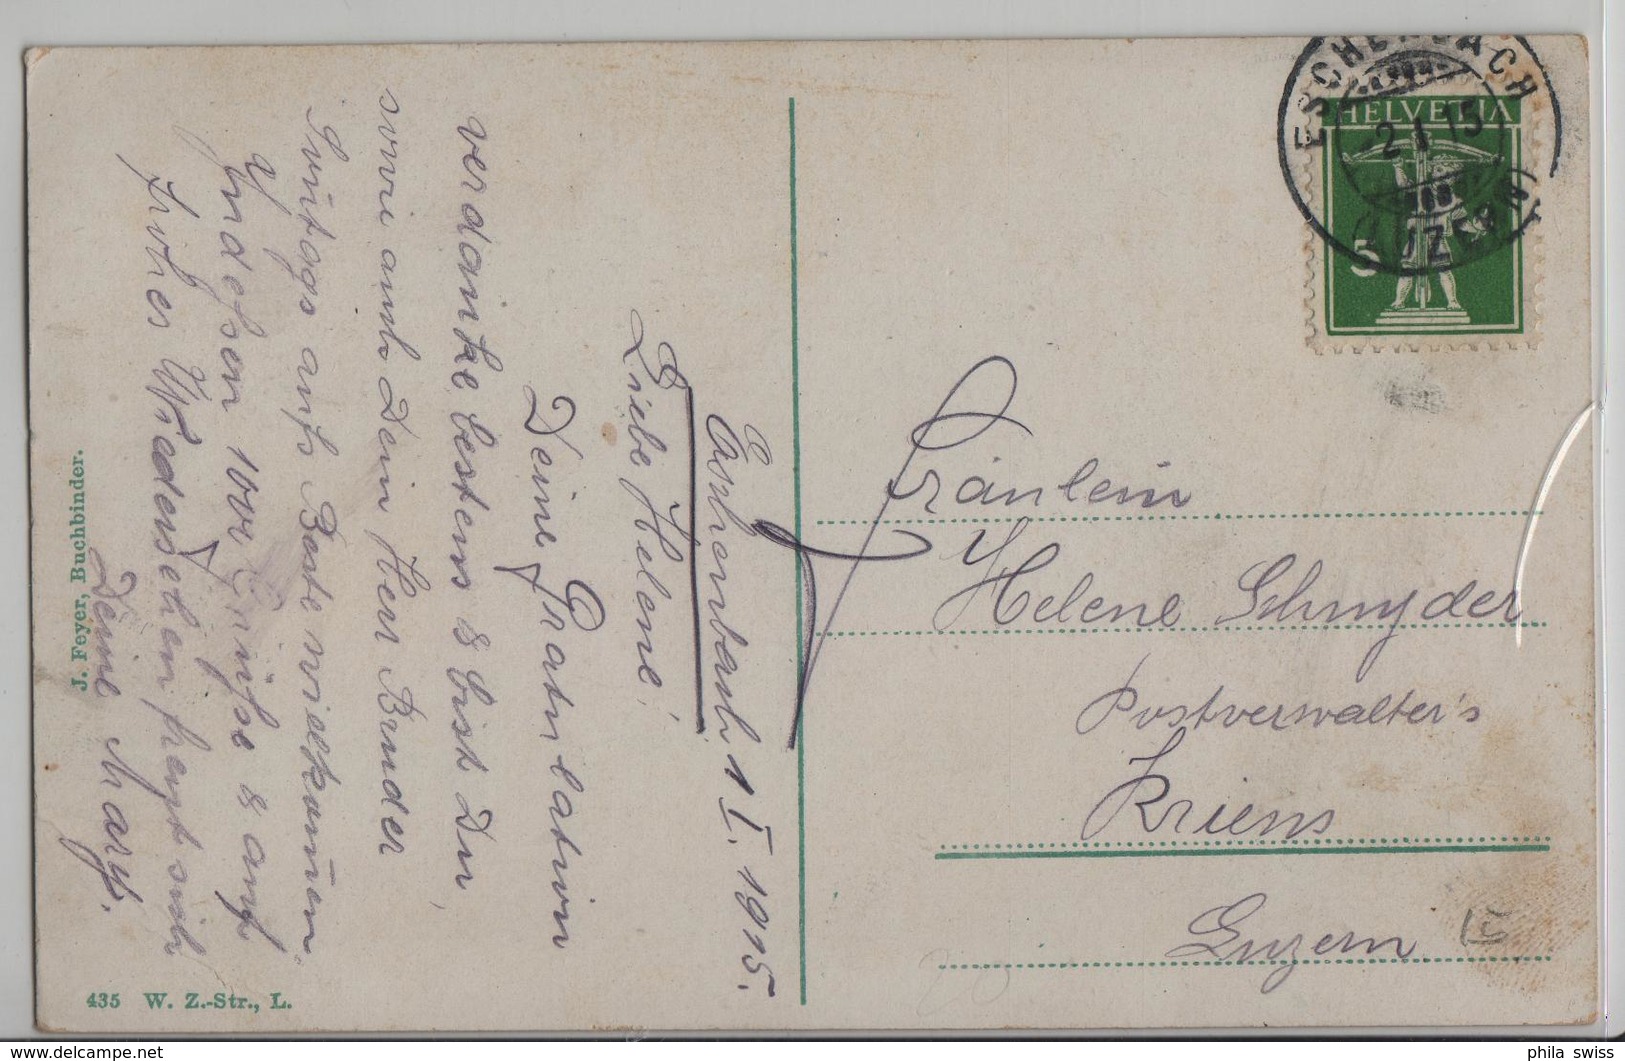 Eschenbach, 1 I. 1915.
Liebe Helene!
Deine Gratulation
verdanke bestens & bist Du,
sowie auch Dein Herr Bruder
Sonntags aufs Beste willkommen.
Indessen 1000 Grüsse & auf
frohes Wiedersehen freut sich
Deine Mary.
J. Feyer, Buchbinder.
435 W. Z.-Str., L.
ESCHENBACH
2.I.15
LUZERN
HELVETIA
5
Fräulein
Helene Schnyder
Postverwalter's
Kriens
Luzern.
15
delcampe.net
phila_swiss